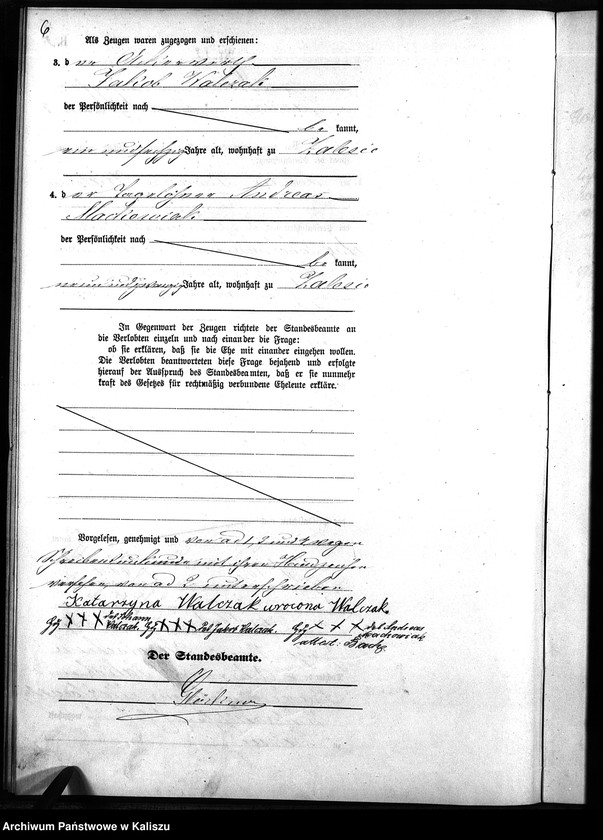 6
Als Zeugen waren zugezogen und erschienen:
3. der Ackerwirth
Jakob Walczak
der Persönlichkeit nach
be kannt,
ein und sechzig Jahre alt, wohnhaft zu Zalesie
4. der Tagelöhner Andreas
Maciowiak
der Persönlichkeit nach
be kannt,
neun und zwanzig Jahre alt, wohnhaft zu Zalesie
In Gegenwart der Zeugen richtete der Standesbeamte an
die Verlobten einzeln und nach einander die Frage:
ob sie erklären, daß sie die Ehe mit einander eingehen wollen.
Die Verlobten beantworteten diese Frage bejahend und erfolgte
hierauf der Ausspruch des Standesbeamten, daß er sie nunmehr
kraft des Gesetzes für rechtmäßig verbundene Eheleute erkläre.
Vorgelesen, genehmigt und von ad 1, und wegen
Schreibensunkunde mit ihren Handzeichen
versehen, von ad 2 unterschrieben
Katarzyna Walczak urodzona Walczak
Hz + + + des Johann Walczak. Hz + + + des Jakob Walczak. Hz + + + des Andreas
attest:
Der Standesbeamte.